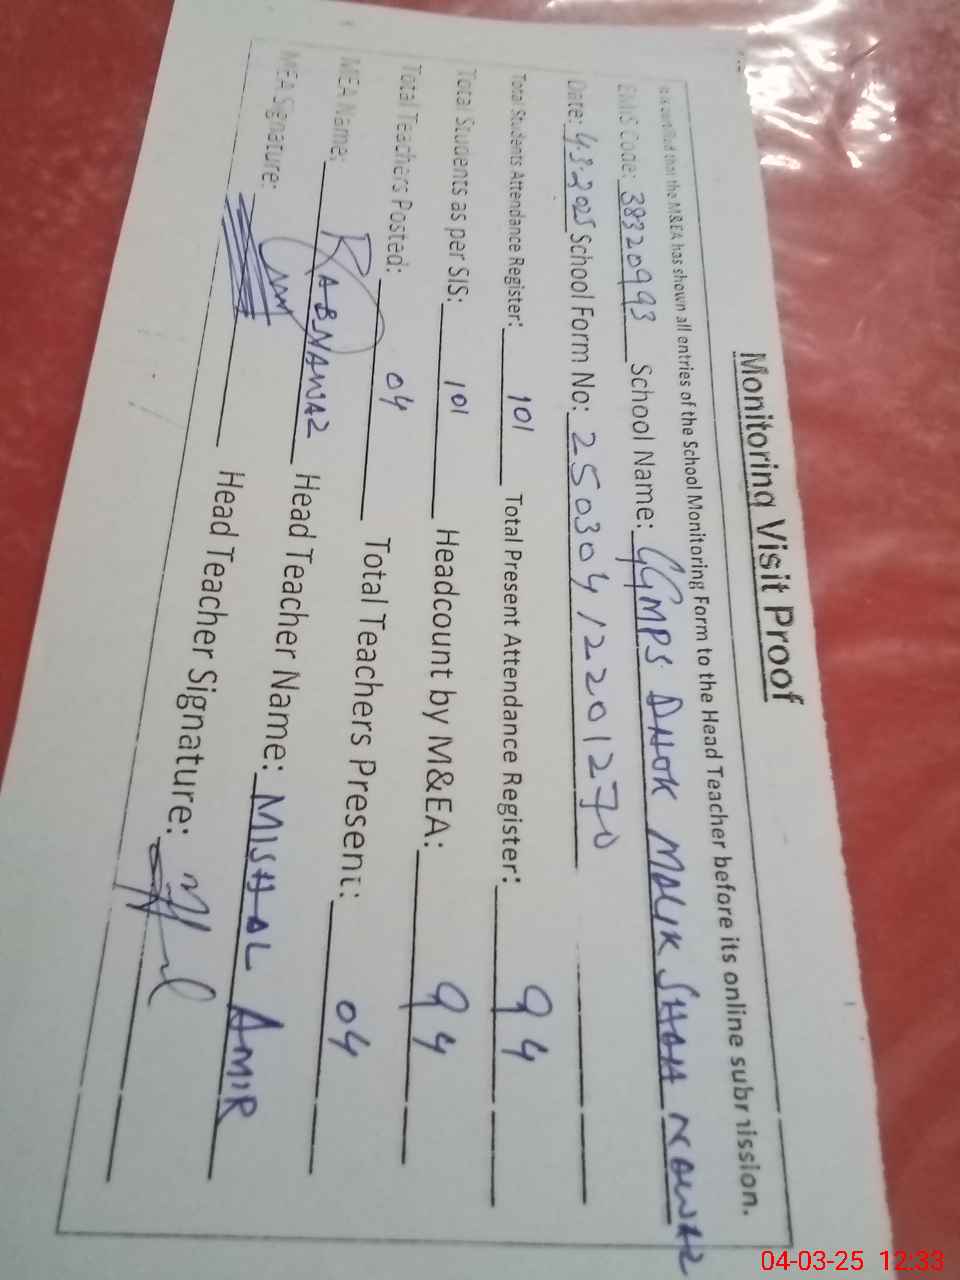 Monitoring Visit Proof
It is certified that the M&EA has shown all entries of the School Monitoring Form to the Head Teacher before its online submission.
EMIS Code: 38320993 School Name: GGMPS DHOK MALIK SHAH NAWAZ
Date: 4.3.2025 School Form No: 25030412201270
Total Students Attendance Register: 101 Total Present Attendance Register: 94
Total Students as per SIS: 101 Headcount by M&EA: 94
Total Teachers Posted: 04 Total Teachers Present: 04
MEA Name: RABNAWAZ Head Teacher Name: MISHAL AMIR
MEA Signature: Head Teacher Signature:
04-03-25 12:33